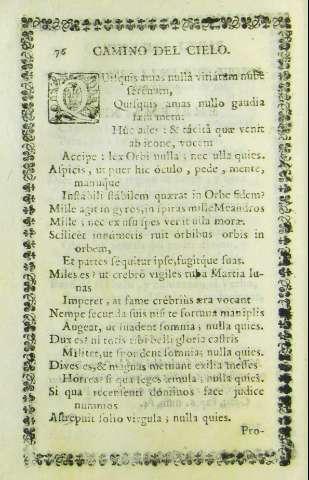 76 CAMINO DEL CIELO.
QUisquis amas nullâ vitiatam nube
serenum,
Quisquis amas nullo gaudia
metu:
Huc ades: & tácitâ quæ venit
ab icone, vocem
Accipe: lex Orbi nulla; nec ulla quies.
Aspicis, ut puer hic óculo, pede, mente,
manuque
Instabili stábilem quærat in Orbe fidem?
Mille agit in gyros, in spiras mille Meandros
Mille; nec ex usu spes venit ulla moræ.
Scilicet innúmeris ruit órbibus orbis in
orbem,
Et partes sequitur ipse, fugitque suas.
Miles es? ut crebrò vigiles tuba Martia lu-
nas
Imperet, at fame crebriùs æra vocant
Nempe secunda suis nisi te fortuna maniplis
Augeat, ut suadent somnia; nulla quies.
Dux es? ni totis tibi belli gloria castris
Militet, ut spondent somnia; nulla quies.
Dives es, & magnas metuant exilia messes
Horrea: si qua seges æmula; nulla quies.
Si qua recensenti dóminos face judice
nummos
Astrepuit folio virgula; nulla quies.
Pro-